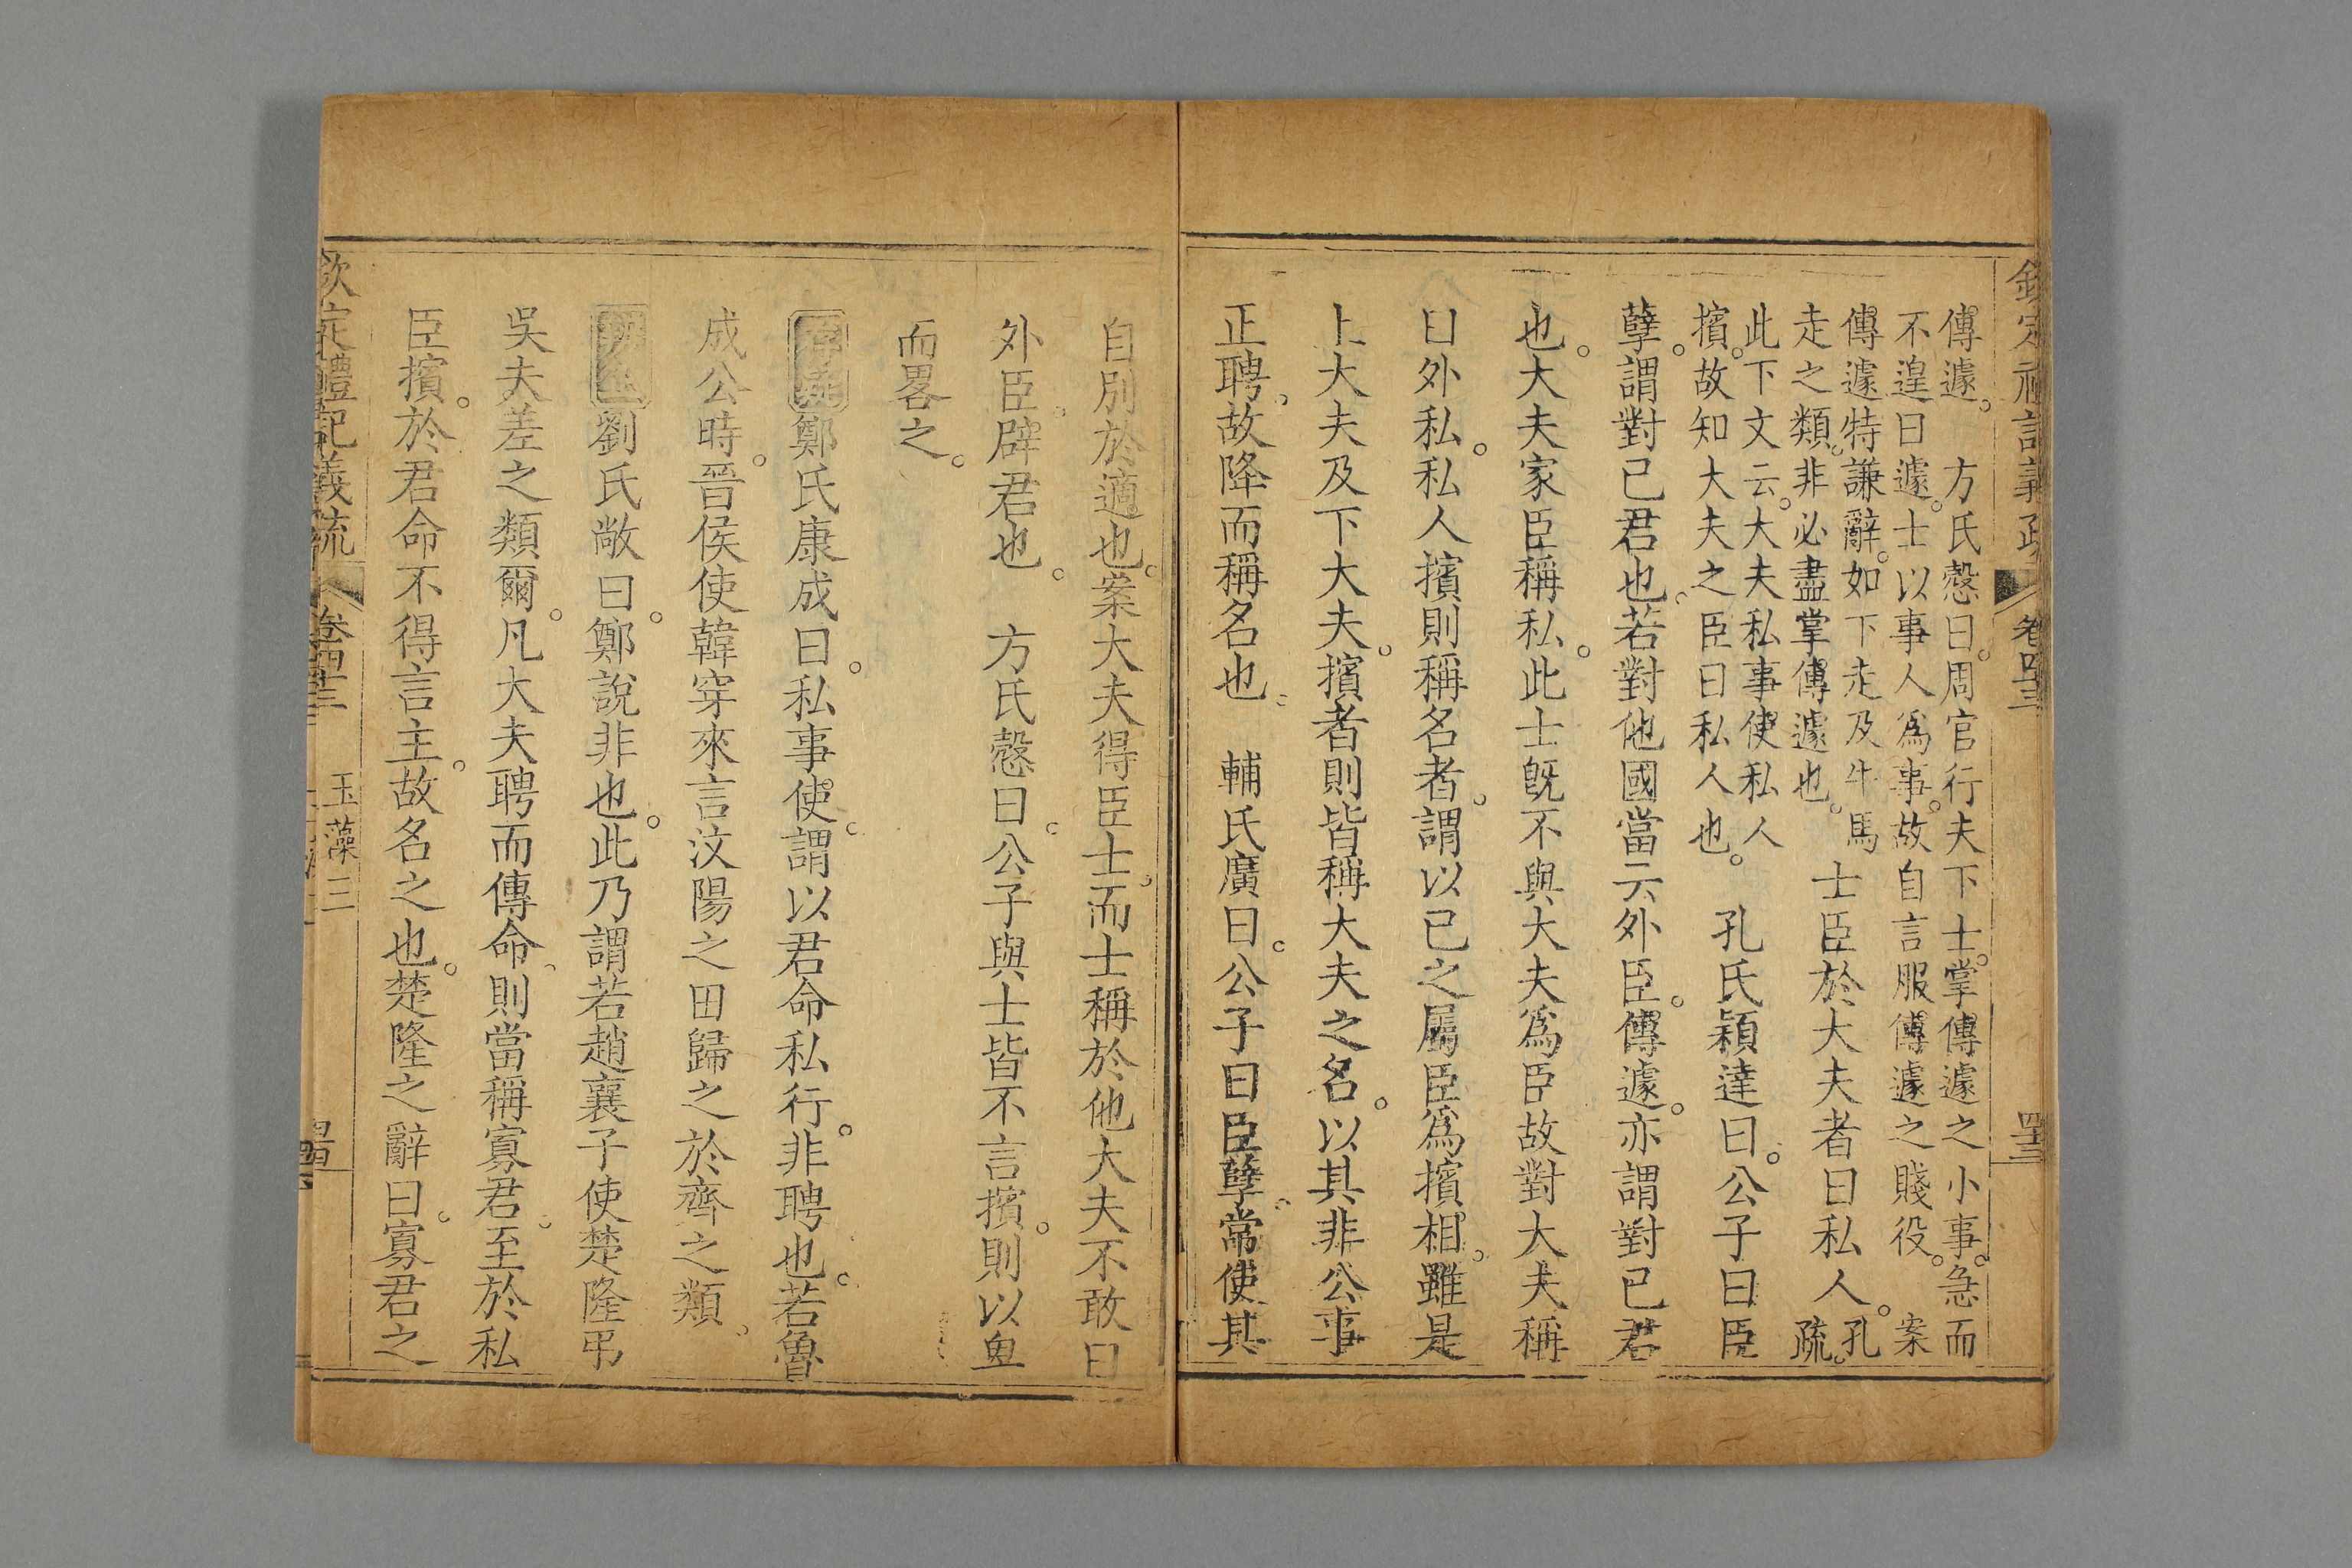 欽定禮記義疏 卷四十三 四十三
傳遽。 方氏慤曰。周官行夫下士。掌傳遽之小事。急而
不遑曰遽。士以事人爲事。故自言服傳遽之賤役。 案
傳遽特謙辭。如下走及牛馬
走之類。非必盡掌傳遽也。
士臣於大夫者曰私人。
孔
疏。
此下文云。大夫私事使私人
擯。故知大夫之臣曰私人也。
孔氏穎達曰。公子曰臣
孽。謂對已君也。若對他國當云外臣。傳遽。亦謂對已君
也。大夫家臣稱私。此士旣不與大夫爲臣故對大夫稱
曰外私。私人擯則稱名者。謂以已之屬臣爲擯相。雖是
上大夫及下大夫。擯者則皆稱大夫之名。以其非公事
正聘。故降而稱名也。 輔氏廣曰。公子曰臣孽。常使其
自別於適也。案大夫得臣士。而士稱於他大夫不敢曰
外臣。辟君也。 方氏慤曰。公子與士皆不言擯。則以卑
而畧之。
存異鄭氏康成曰。私事使。謂以君命私行。非聘也。若魯
成公時。晉侯使韓穿來言汶陽之田歸之於齊之類。
辨正劉氏敞曰。鄭說非也。此乃謂若趙襄子使楚隆弔
吳夫差之類爾。凡大夫聘而傳命。則當稱寡君。至於私
臣擯。於君命不得言主。故名之也。楚隆之辭曰。寡君之
欽定禮記義疏 卷四十三 玉藻三 四十四